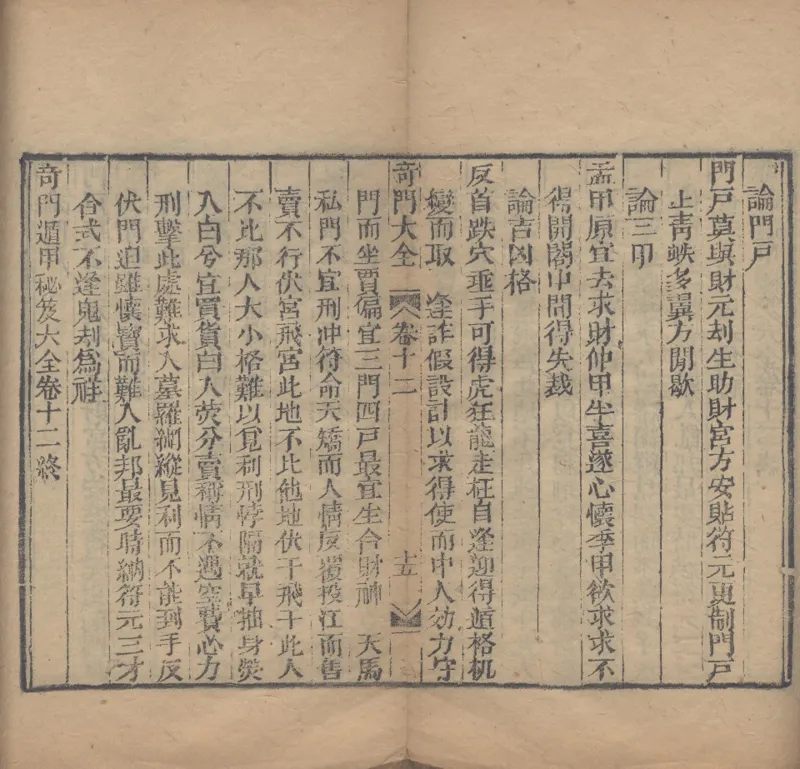 論門戶
門戶莫與財元刼生助財宮方安貼符元更制門戶
止靑蚨多翼方閒歇
論三甲
孟甲原宜去求財仲甲半喜遂心懷季甲欲求求不
得開闔中間得失裁
論吉凶格
反首跌穴垂手可得虎狂龍走枉自逢迎得遁格机
變而取 逢詐假設計以求得使而中人効力守
奇門大全 卷十二 十五
門而坐賈偏宜三門四戶最宜生合財神 天馬
私門不宜刑冲符命天矯而人情反覆投江而售
賣不行伏宮飛宮此地不比他地伏干飛干此人
不比那人大小格難以覓利刑悖隔就早抽身熒
入白兮宜買貨白入熒分賣稱情不遇空費心力
刑擊此處難求入墓羅網縱見利而不能到手反
伏門迫雖懷寶而難入亂邦最要時納符元三才
合式不逢鬼刼爲祥
奇門遁甲秘笈大全卷十二終